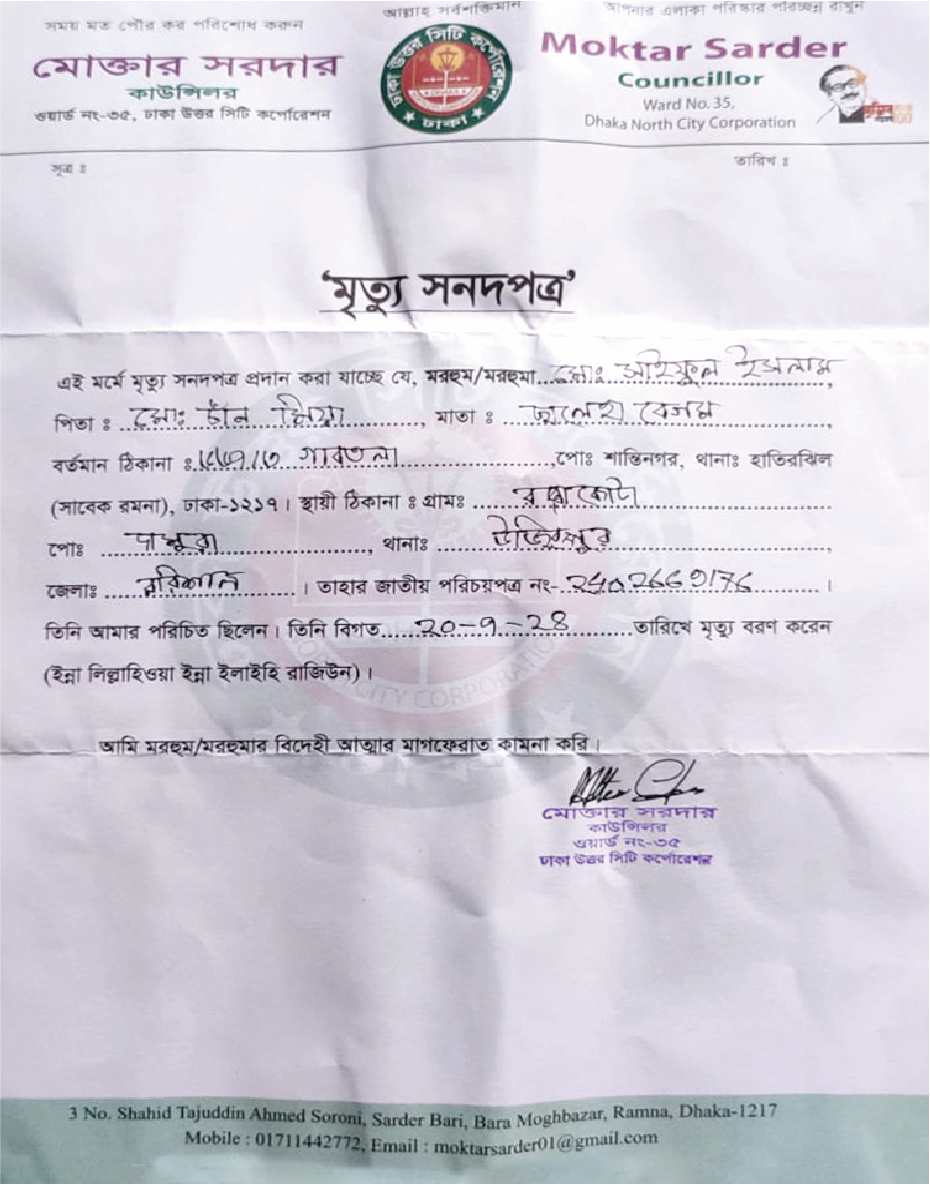 সময় মত পৌর কর পরিশোধ করুন
আল্লাহ সর্বশক্তিমান
আপনার এলাকা পরিস্কার পরিচ্ছন্ন রাখুন
মোক্তার সরদার
কাউন্সিলর
ওয়ার্ড নং-৩৫, ঢাকা উত্তর সিটি কর্পোরেশন
ঢাকা উত্তর সিটি কর্পোরেশন
ঢাকা
Moktar Sarder
Councillor
Ward No. 35,
Dhaka North City Corporation
সূত্র ঃ
তারিখ ঃ
‘মৃত্যু সনদপত্র’
এই মর্মে মৃত্যু সনদপত্র প্রদান করা যাচ্ছে যে, মরহুম/মরহুমা মোঃ সাইফুল ইসলাম,
পিতা ঃ মোঃ চাঁন মিয়া, মাতা ঃ জালেহা বেগম,
বর্তমান ঠিকানা ঃ গাবতলা,পোঃ শান্তিনগর, থানাঃ হাতিরঝিল
(সাবেক রমনা), ঢাকা-১২১৭। স্থায়ী ঠিকানা ঃ গ্রামঃ
পোঃ, থানাঃ উজিরপুর,
জেলাঃ বরিশাল। তাহার জাতীয় পরিচয়পত্র নং- 2402669176।
তিনি আমার পরিচিত ছিলেন। তিনি বিগত ২০-৭-২৪ তারিখে মৃত্যু বরণ করেন
(ইন্না লিল্লাহিওয়া ইন্না ইলাইহি রাজিউন)।
আমি মরহুম/মরহুমার বিদেহী আত্মার মাগফেরাত কামনা করি।
মোক্তার সরদার
কাউন্সিলর
ওয়ার্ড নং-৩৫
ঢাকা উত্তর সিটি কর্পোরেশন
3 No. Shahid Tajuddin Ahmed Soroni, Sarder Bari, Bara Moghbazar, Ramna, Dhaka-1217
Mobile : 01711442772, Email : moktarsarder01@gmail.com